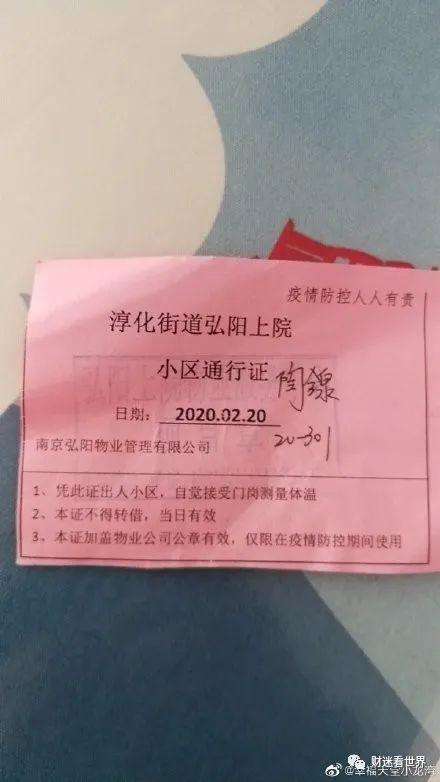 疫情防控人人有责
淳化街道弘阳上院
小区通行证
日期: 2020.02.20
20-301
南京弘阳物业管理有限公司
1、凭此证出人小区，自觉接受门岗测量体温
2、本证不得转借，当日有效
3、本证加盖物业公司公章有效，仅限在疫情防控期间使用
财迷看世界
@幸福天堂小龙湾